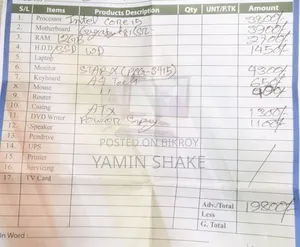 S/L Items Products Description Qty UNT/P.TK Amount
1. Processor Intel Core i5
2. Motherboard Gigabyte
3. RAM
4. H.D.D/SSD WD 1450/-
5. Laptop
6. Monitor 4300/-
7. Keyboard A4 Tech 650/-
8. Mouse 11
9. Router
10. Casing ATX 1300/-
11. DVD Writer Power 1100/-
12. Speaker
13. Pendrive
14. UPS
15. Printer
16. Servicing
17. TV Card
POSTED ON BIKROY
YAMIN SHAKE
Adv./Total 19800/-
Less
G. Total
In Word :